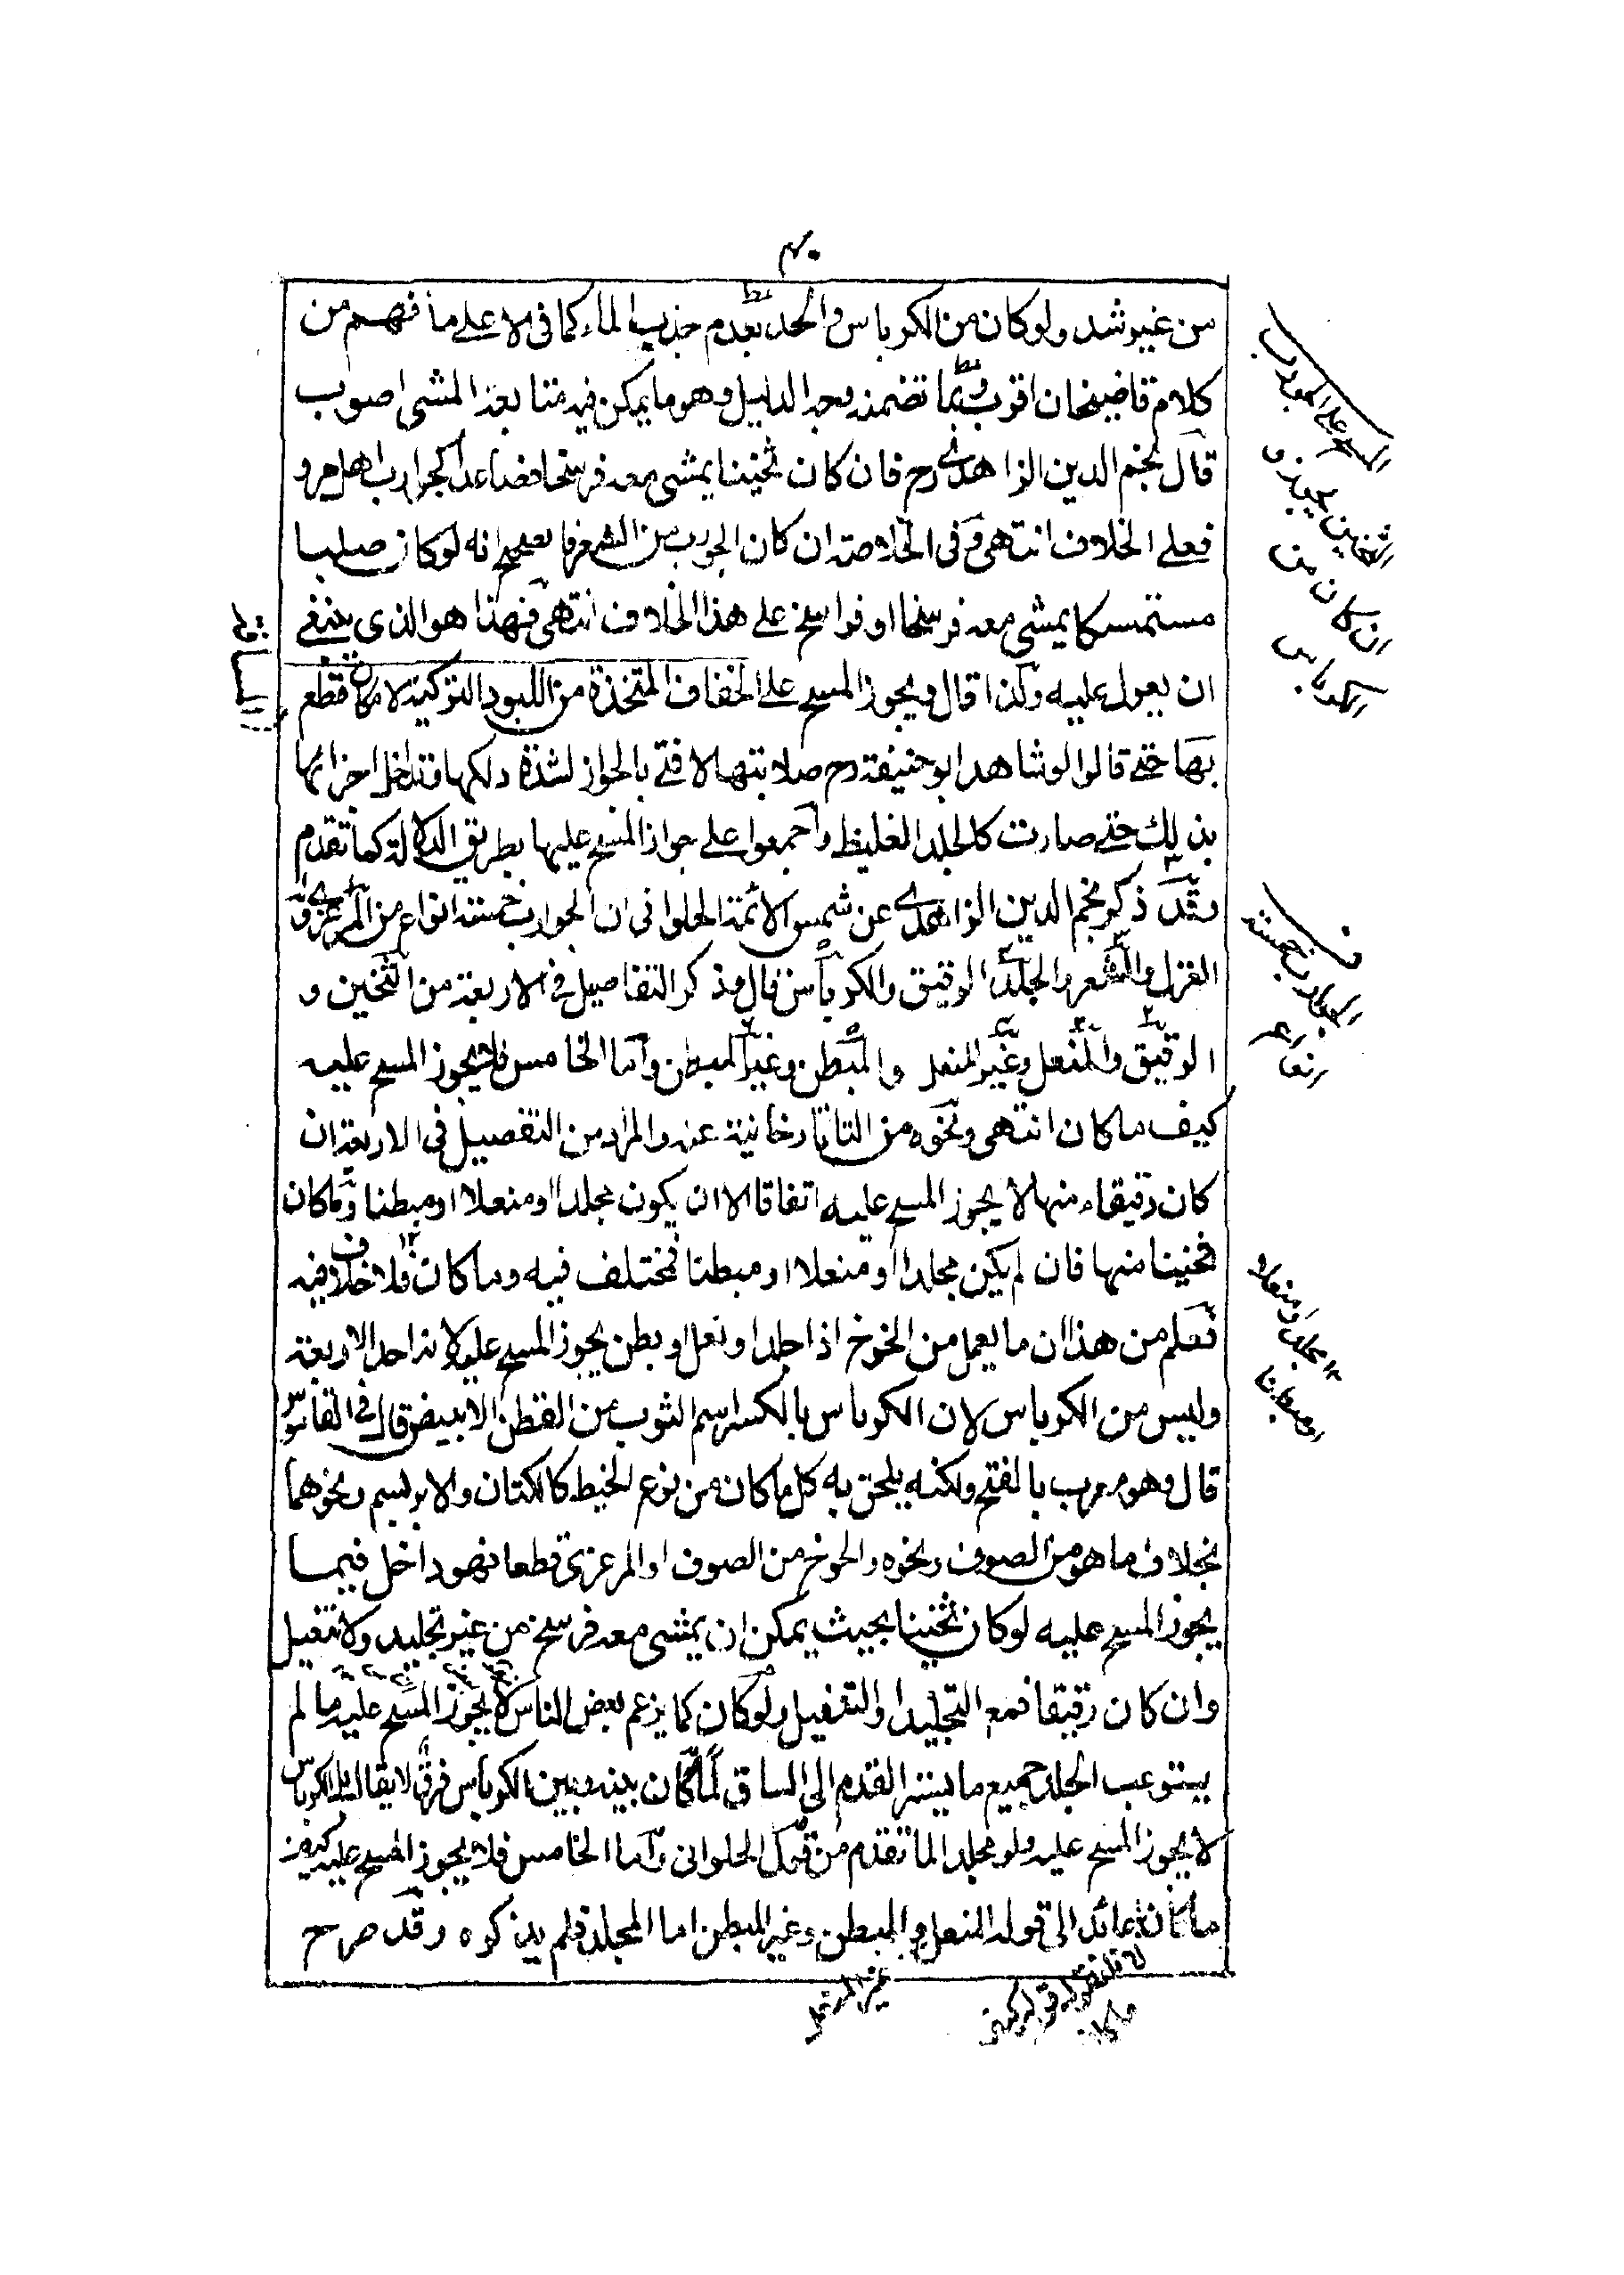 من غير شد ولو كان من الكرباس والحد بعدم جذب الماء كما في الا على ما فهم من
كلام قاضيخان اقرب وبما تضمنه وجه الدليل وهو ما يمكن فيه متابعة المشي اصوب
قال نجم الدين الزاهدي رح فان كان ثخينا يمشي معه فرسخا فصاعدا كجوارب اهل مرو
فعلى الخلاف انتهى وفي الخلاصة ان كان الجورب من الشعر فا لصحيح انه لو كان صلبا
مستمسكا يمشي معه فرسخا او فراسخ على هذا الخلاف انتهى فهذا هو الذي ينبغي
ان يعول عليه وكذا قال ويجوز المسح على الخفاف المتخذة من اللبود التركية لامكان قطع
بها حتى قالوا لو شاهد ابو حنيفة رح صلابتها لافتى بالجواز لشدة دلكها وتداخل اجزائها
بذلك حتى صارت كالجلد الغليظ واجمعوا على جواز المسح عليها بطريق الدلالة كما تقدم
وقد ذكر نجم الدين الزاهدي عن شمس الائمة الحلواني ان الجوارب خمسة انواع من المرعزي و
الغزل والشعر والجلد الرقيق والكرباس قال وذكر التفاصيل في الاربعة من الثخين و
الرقيق والمنعل وغير المنعل والمبطن وغير المبطن واما الخامس فلا يجوز المسح عليه
كيف ما كان انتهى ونحوه من التاتارخانية عنه والمراد من التفصيل في الاربعة ان
كان رقيقا منها لا يجوز المسح عليه اتفاقا الا ان يكون مجلدا او منعلا او مبطنا وما كان
ثخينا منها فان لم يكن مجلدا او منعلا او مبطنا فمختلف فيه وما كان فلا خلاف فيه
فعلم من هذا ان ما يعمل من الجوخ اذا جلد او نعل او بطن يجوز المسح عليه لانه احد الاربعة
وليس من الكرباس لان الكرباس بالكسر اسم الثوب من القطن الابيض قال في القاموس
قال وهو معرب بالفتح ولكنه يلحق به كل ما كان من نوع الخيط كالكتان والابريسم ونحوهما
بخلاف ما هو من الصوف ونحوه والجوخ من الصوف او المرعزي قطعا فهو داخل فيما
يجوز المسح عليه لو كان ثخينا بحيث يمكن ان يمشي معه فرسخ من غير تجليد ولا تنعيل
وان كان رقيقا فمع التجليد او التنعيل ولو كان كما يزعم بعض الناس لا يجوز المسح عليه ما لم
يستوعب الجلد جميع ما يستر القدم الى الساق لما كان بينه وبين الكرباس فرق لا يقال الكرباس
لا يجوز المسح عليه ولو مجلدا لما تقدم من قول الحلواني واما الخامس فلا يجوز المسح عليه كيف
ما كان عائد الى قوله المنعل والمبطن وغير المبطن اما المجلد فلم يذكره وقد صرح
المسح على الجورب
الثخين يجوز و
ان كان من
الكرباس
الجوارب خمسة
انواع
مجلدا او منعلا
او مبطنا
غير المنعل